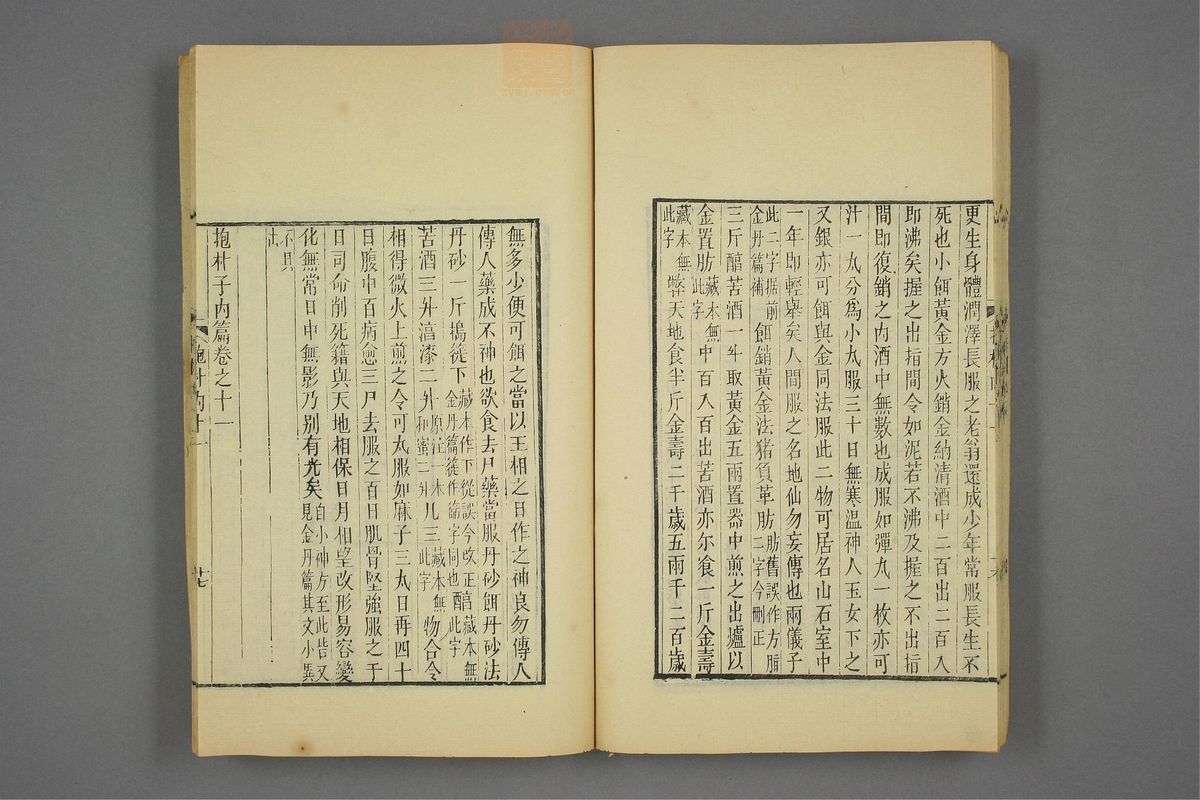 更生身體潤澤長服之老翁還成少年常服長生不
死也小餌黃金方火銷金納清酒中二百出二百入
即沸矣握之出指間令如泥若不沸及握之不出指
間即復銷之內酒中無數也成服如彈丸一枚亦可
汁一丸分為小丸服三十日無寒温神人玉女下之
又銀亦可餌與金同法服此二物可居名山石室中
一年即輕舉矣人間服之名地仙勿妄傳也兩儀子
此二字據前金丹篇補餌銷黃金法豬負革肪肪舊誤作方脂二字今刪正
三斤醕苦酒一斗取黃金五兩置器中煎之出爐以
金置肪藏本無此字中百入百出苦酒亦尔食一斤金壽
藏本無此字弊天地食半斤金壽二千歲五兩千二百歲
無多少便可餌之當以王相之日作之神良勿傳人
傳人藥成不神也欲食去尸藥當服丹砂餌丹砂法
丹砂一斤搗蓰下藏本作下從誤今改正金丹篇蓰作篩字同也醕藏本無此字
苦酒三升淳漆二升原注一本和蜜二升凡三藏本無此字物合令
相得微火上煎之令可丸服如麻子三丸日再四十
日腹中百病愈三尸去服之百日肌骨堅強服之千
日司命削死籍與天地相保日月相望改形易容變
化無常日中無影乃別有光矣自小神方至此皆又見金丹篇其文小異
不具
註
抱朴子內篇卷之十一
抱朴內十一